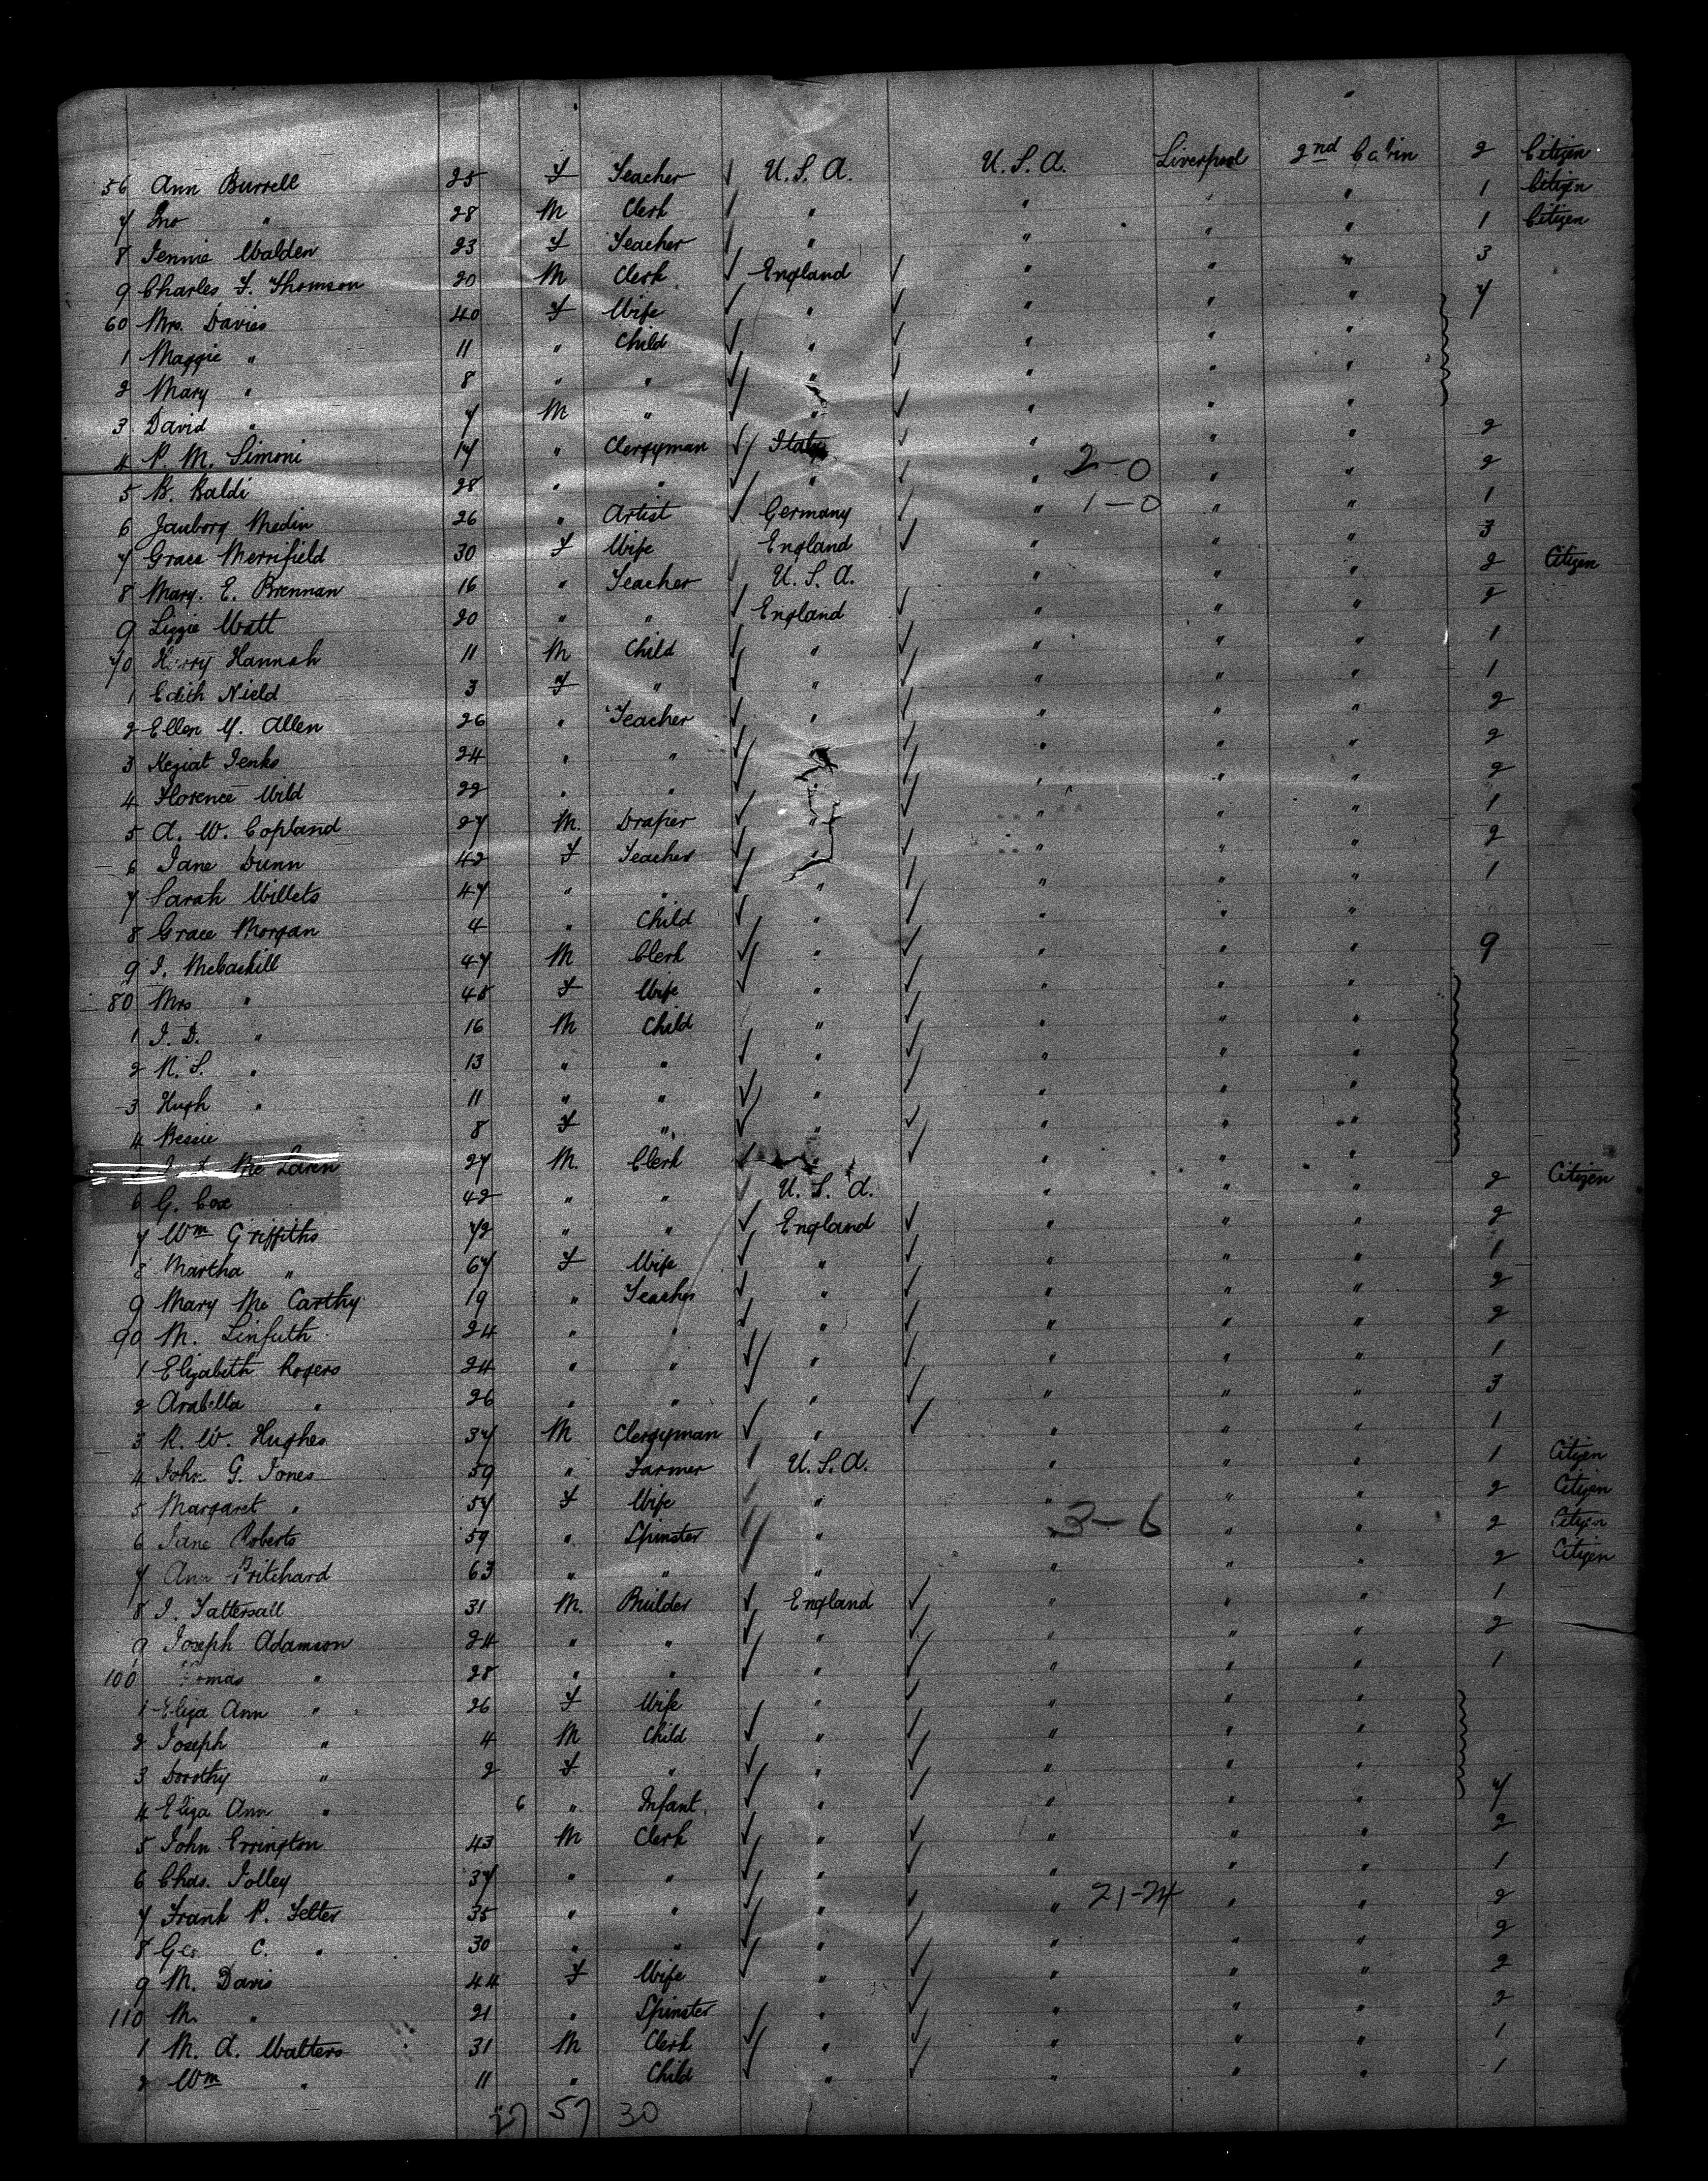 56 Ann Burrell 25 F Teacher U.S.A. U.S.A. Liverpool 2nd Cabin 2 Citizen
7 Jno " 28 M Clerk " " " " 1 Citizen
8 Jennie Walden 23 F Teacher " " " " 1 Citizen
9 Charles F. Thomson 20 M Clerk England " " " 3
60 Mrs. Davies 40 F Wife " " " " 7
1 Maggie " 11 " Child " " " "
2 Mary " 8 " " " " " "
3 David " 7 M " " " " "
4 P. M. Simoni 17 " Clergyman Italy " " " 2
5 B. Baldi 28 " " " 2-0 " " 2
6 Jauborg Medin 26 " Artist Germany " 1-0 " " 1
7 Grace Merrifield 30 F Wife England " " " 3
8 Mary. E. Brennan 16 " Teacher U.S.A. " " " 2 Citizen
9 Lizzie Watt 20 " " England " " " 2
70 Harry Hannah 11 M Child " " " " 1
1 Edith Nield 3 F " " " " " 1
2 Ellen Y. Allen 26 " Teacher " " " " 2
3 Keziat Jenks 24 " " " " " " 2
4 Florence Wild 22 " " " " " 2
5 A. W. Copland 27 M. Draper " " " " 1
6 Jane Dunn 42 F Teacher " " " " 2
7 Sarah Willets 47 " " " " " " 1
8 Grace Morgan 4 " Child " " " "
9 J. McCaskill 47 M Clerk " " " " 9
80 Mrs " 45 F Wife " " " "
1 J. D. " 16 M Child " " " "
2 N. S. " 13 " " " " " "
3 Hugh " 11 " " " " " "
4 Bessie 8 F " " " " "
Mc Laren 27 M. Clerk " " " "
6 G. Cox 42 " " U.S.A. " " " 2 Citizen
7 Wm Griffiths 72 " " England " " " 2
8 Martha " 67 F Wife " " " " 1
9 Mary Mc Carthy 19 " Teacher " " " " 2
90 M. Linfuth 24 " " " " " " 2
1 Elizabeth Rogers 24 " " " " " " 1
2 Arabella " 26 " " " " " " 3
3 R. W. Hughes 37 M Clergyman " " " " 1
4 John G. Jones 59 " Farmer U.S.A. " " " 1 Citizen
5 Margaret " 57 F Wife " " " " 2 Citizen
6 Jane Roberts 59 " Spinster " 3-6 " " 2 Citizen
7 Ann Pritchard 63 " " " " " " 2 Citizen
8 J. Tattersall 31 M. Builder England " " " 1
9 Joseph Adamson 24 " " " " " " 2
100 Tomas " 28 " " " " " " 1
1 Eliza Ann " 26 F Wife " " " "
2 Joseph " 4 M Child " " " "
3 Dorothy " 2 F " " " " "
4 Eliza Ann " 6 " Infant " " " " 7
5 John Errington 43 M Clerk " " " " 2
6 Chas. Jolley 37 " " " " " " 1
7 Frank P. Felter 35 " " " " 21-24 " " 2
8 Geo C. " 30 " " " " " " 2
9 M. Davis 44 F Wife " " " " 2
110 M. " 21 " Spinster " " " " 2
1 M. A. Walters 31 M Clerk " " " " 1
2 Wm " 11 " Child " " " " 1
27 57 30